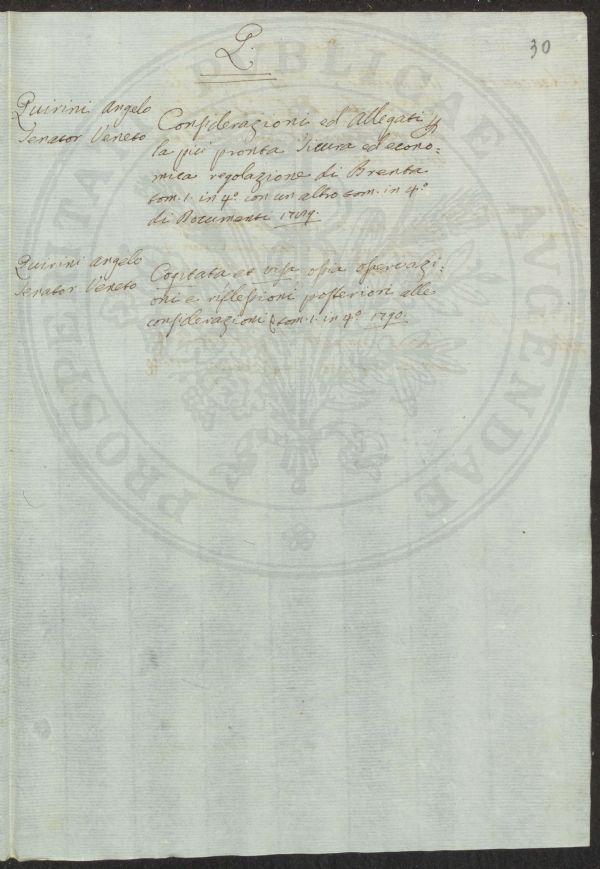 Q.
30
Quirini Angelo
Senator Veneto
Considerazioni ed Allegati p
la più pronta sicura ed econo:
mica regolazione di Brenta
tom. 1. in 4º con un altro tom. in 4º
di Documenti 1789.
Quirini Angelo
Senator Veneto
Cogitata et visa ossia osservazi:
oni e riflessioni posteriori alle
considerazioni tom. 1. in 4º 1790.
PROSPERITATI PUBLICAE AUGENDAE